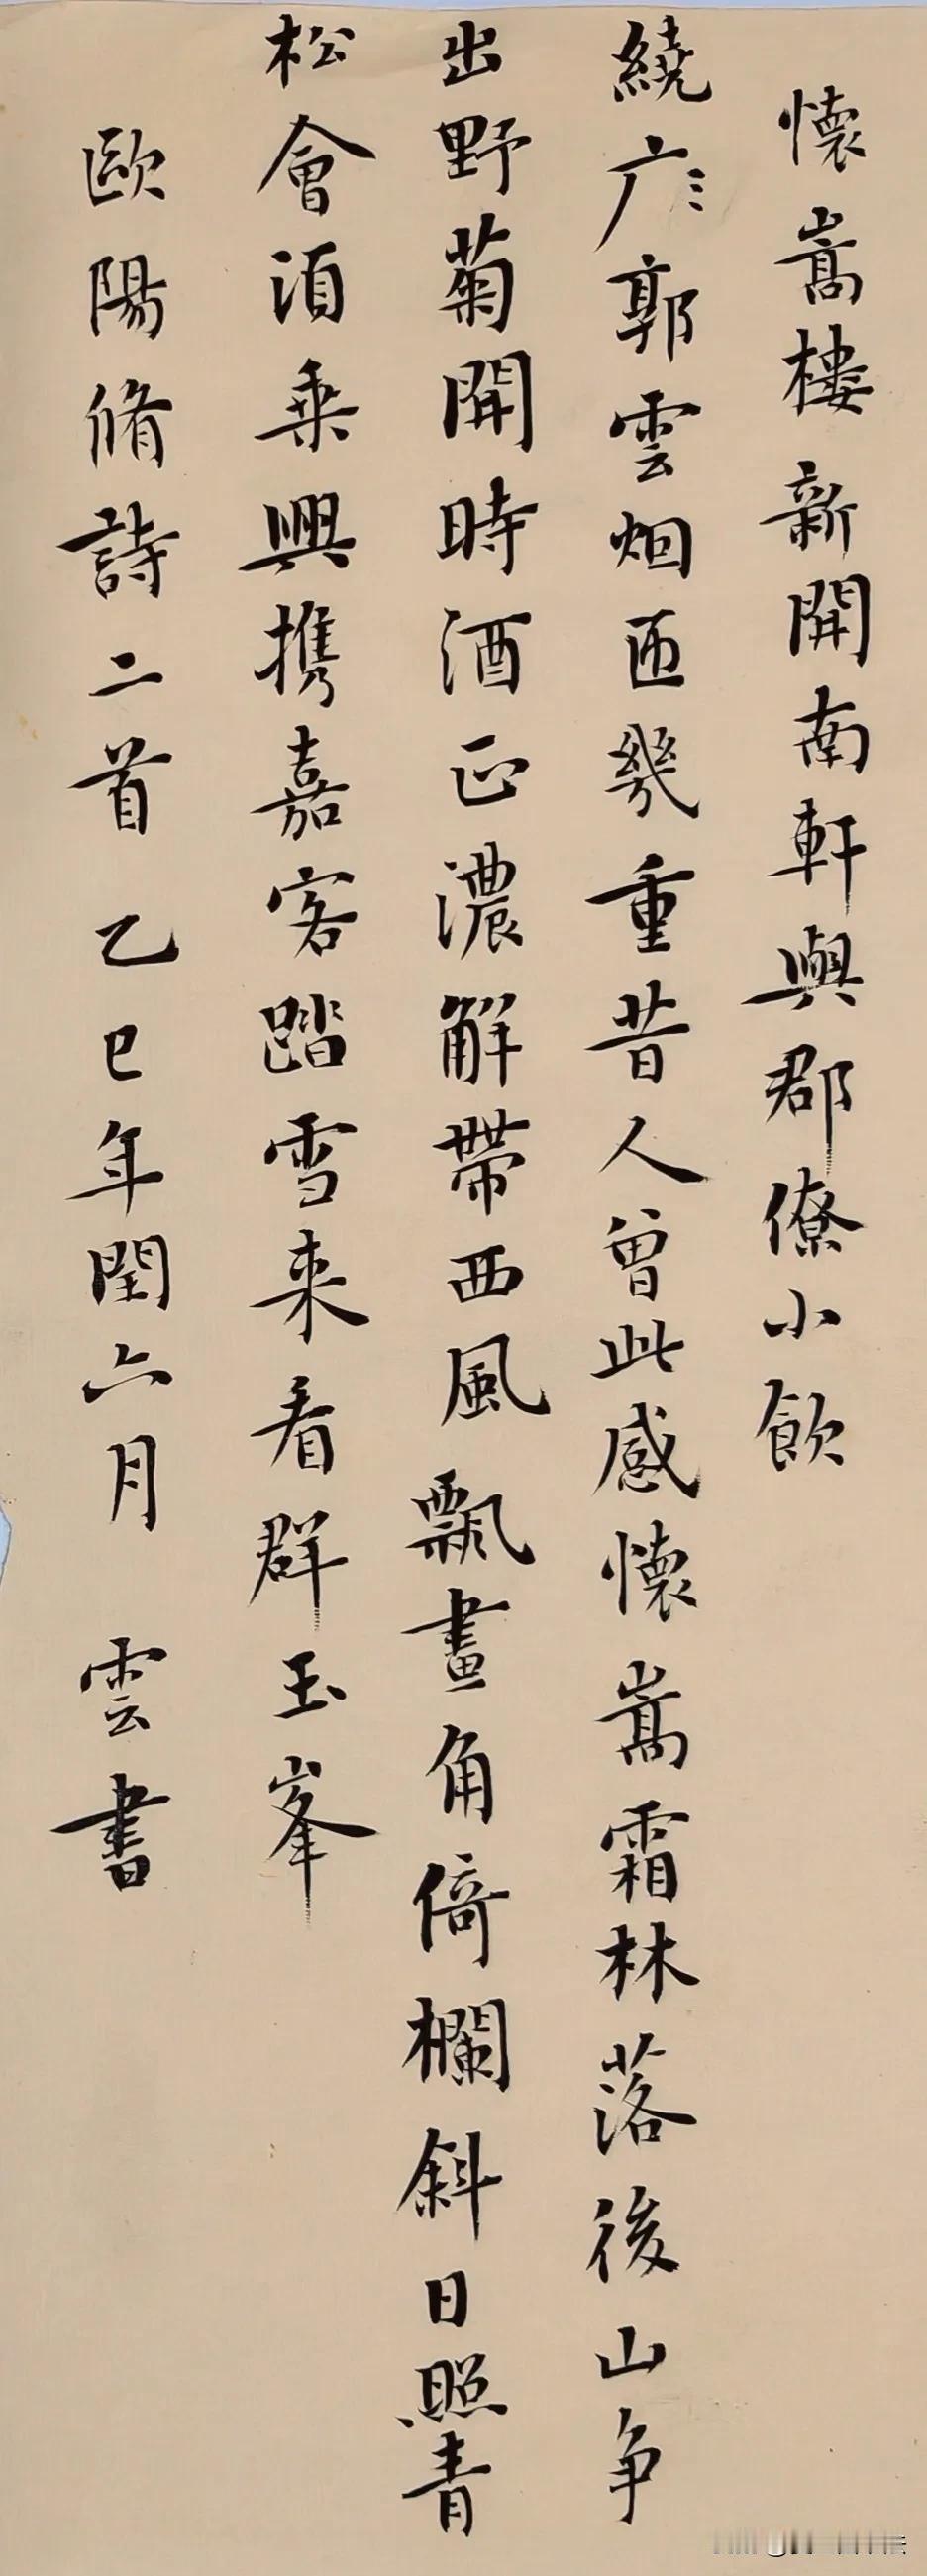 懷嵩樓新開南軒與郡僚小飲
繞广郭雲烟匝幾重昔人曾此感懷嵩霜林落後山争
出野菊開時酒正濃解帶西風飄畫角倚欄斜日照青
松會湏乗興携嘉客踏雪来看群玉峯
歐陽脩詩二首 乙巳年閏六月 雲書